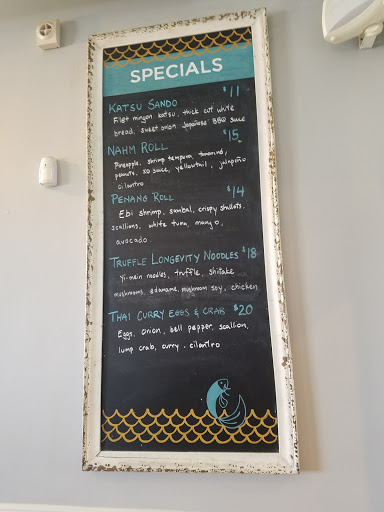 SPECIALS
KATSU SANDO $11
Filet mignon katsu, thick cut white
bread, sweet onion Japanese BBQ sauce
NAHM ROLL $15
Pineapple, shrimp tempura, tamarind,
peanuts, XO sauce, yellowtail, jalapeño
cilantro
PENANG ROLL $14
Ebi shrimp, sambal, crispy shallots,
scallions, white tuna, mango,
avocado
TRUFFLE LONGEVITY NOODLES $18
Yi-mein noodles, truffle, shiitake
mushrooms, edamame, mushroom soy, chicken
THAI CURRY EGGS & CRAB $20
Eggs, onion, bell pepper, scallion,
lump crab, curry, cilantro